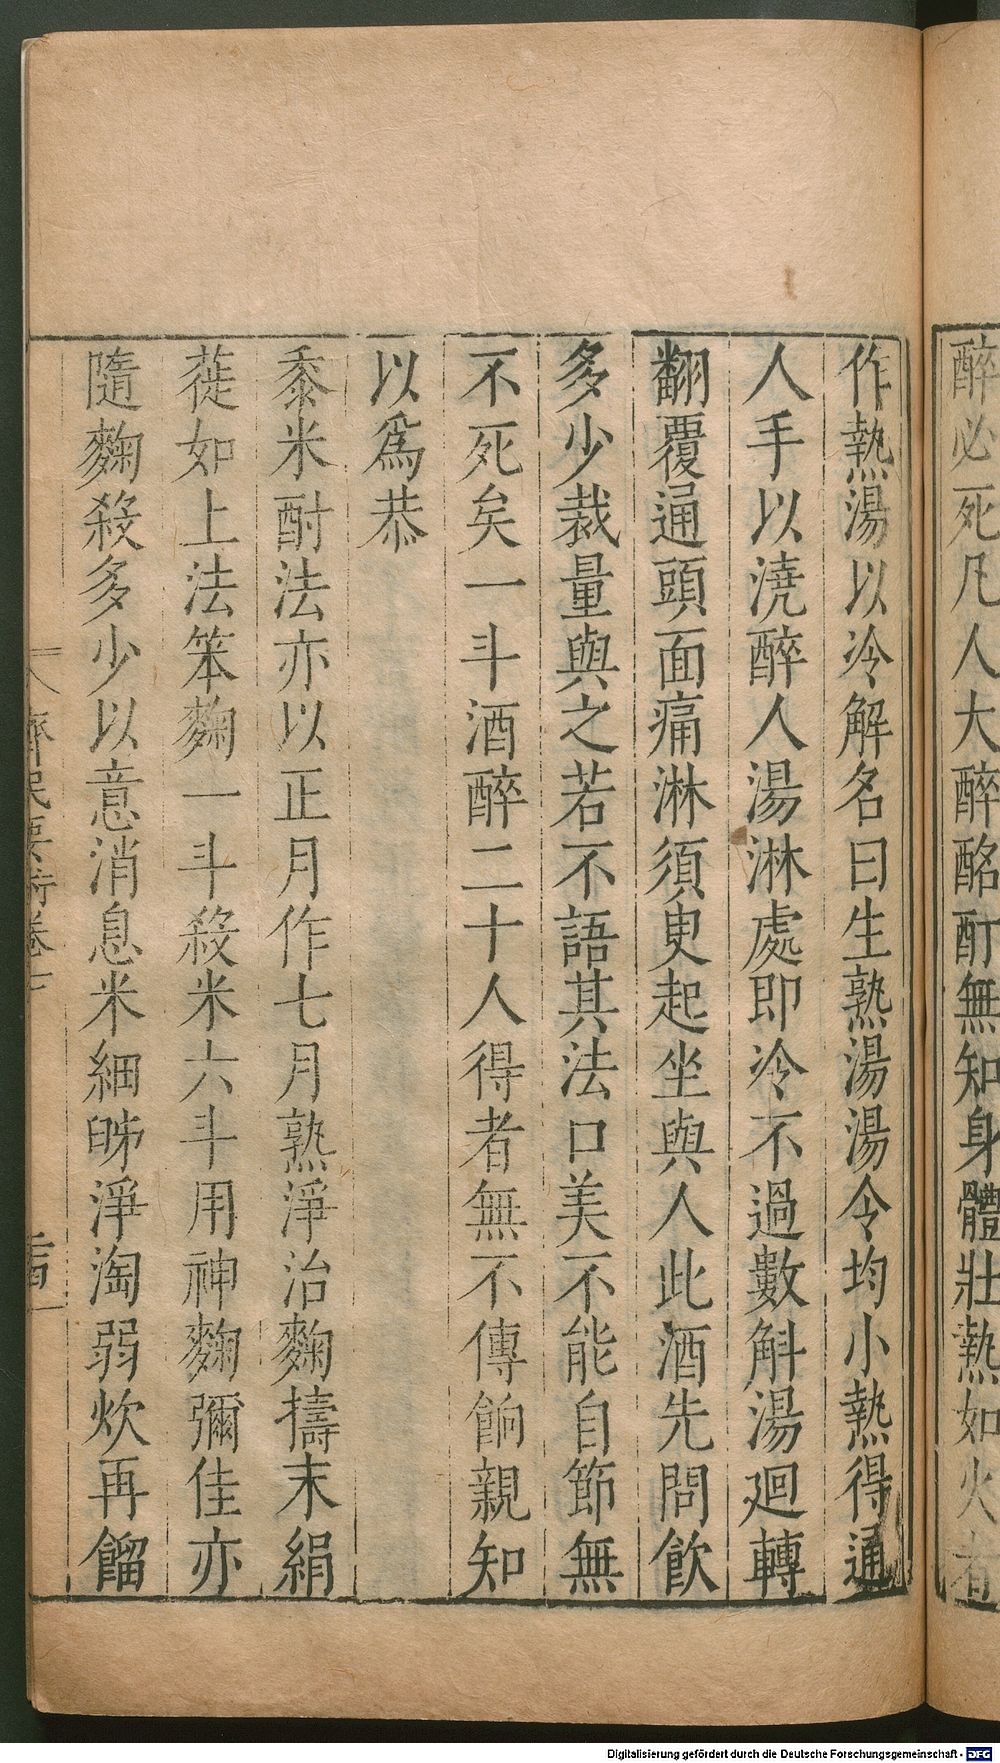 醉必死凡人大醉酩酊無知身體壯熱如火者
作熱湯以冷解名曰生熟湯湯令均小熱得通
人手以澆醉人湯淋處即冷不過數斛湯廻轉
翻覆通頭面痛淋須臾起坐與人此酒先問飲
多少裁量與之若不語其法口美不能自節無
不死矣一斗酒醉二十人得者無不傳餉親知
以爲恭
黍米酎法亦以正月作七月熟淨治麴擣末絹
蓰如上法笨麴一斗殺米六斗用神麴彌佳亦
隨麴殺多少以意消息米細𦥛淨淘弱炊再餾
齊民要術卷七
Digitalisierung gefördert durch die Deutsche Forschungsgemeinschaft - DFG